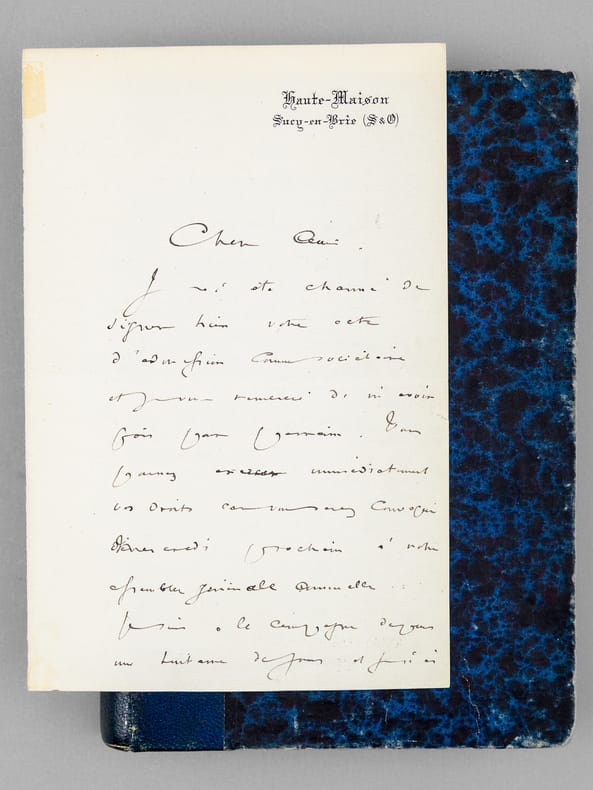 Haute-Maison
Sucy-en-Brie (S&O)
Cher Ami.
J'ai été charmé de
signer hier votre acte
d'admission comme sociétaire
et je vous remercie de m'avoir
pris pour parrain. Vous
immédiatement
vos droits car vous serez convoqué
mercredi prochain à votre
assemblée générale annuelle.
Je suis à la campagne depuis
une huitaine de jours et je